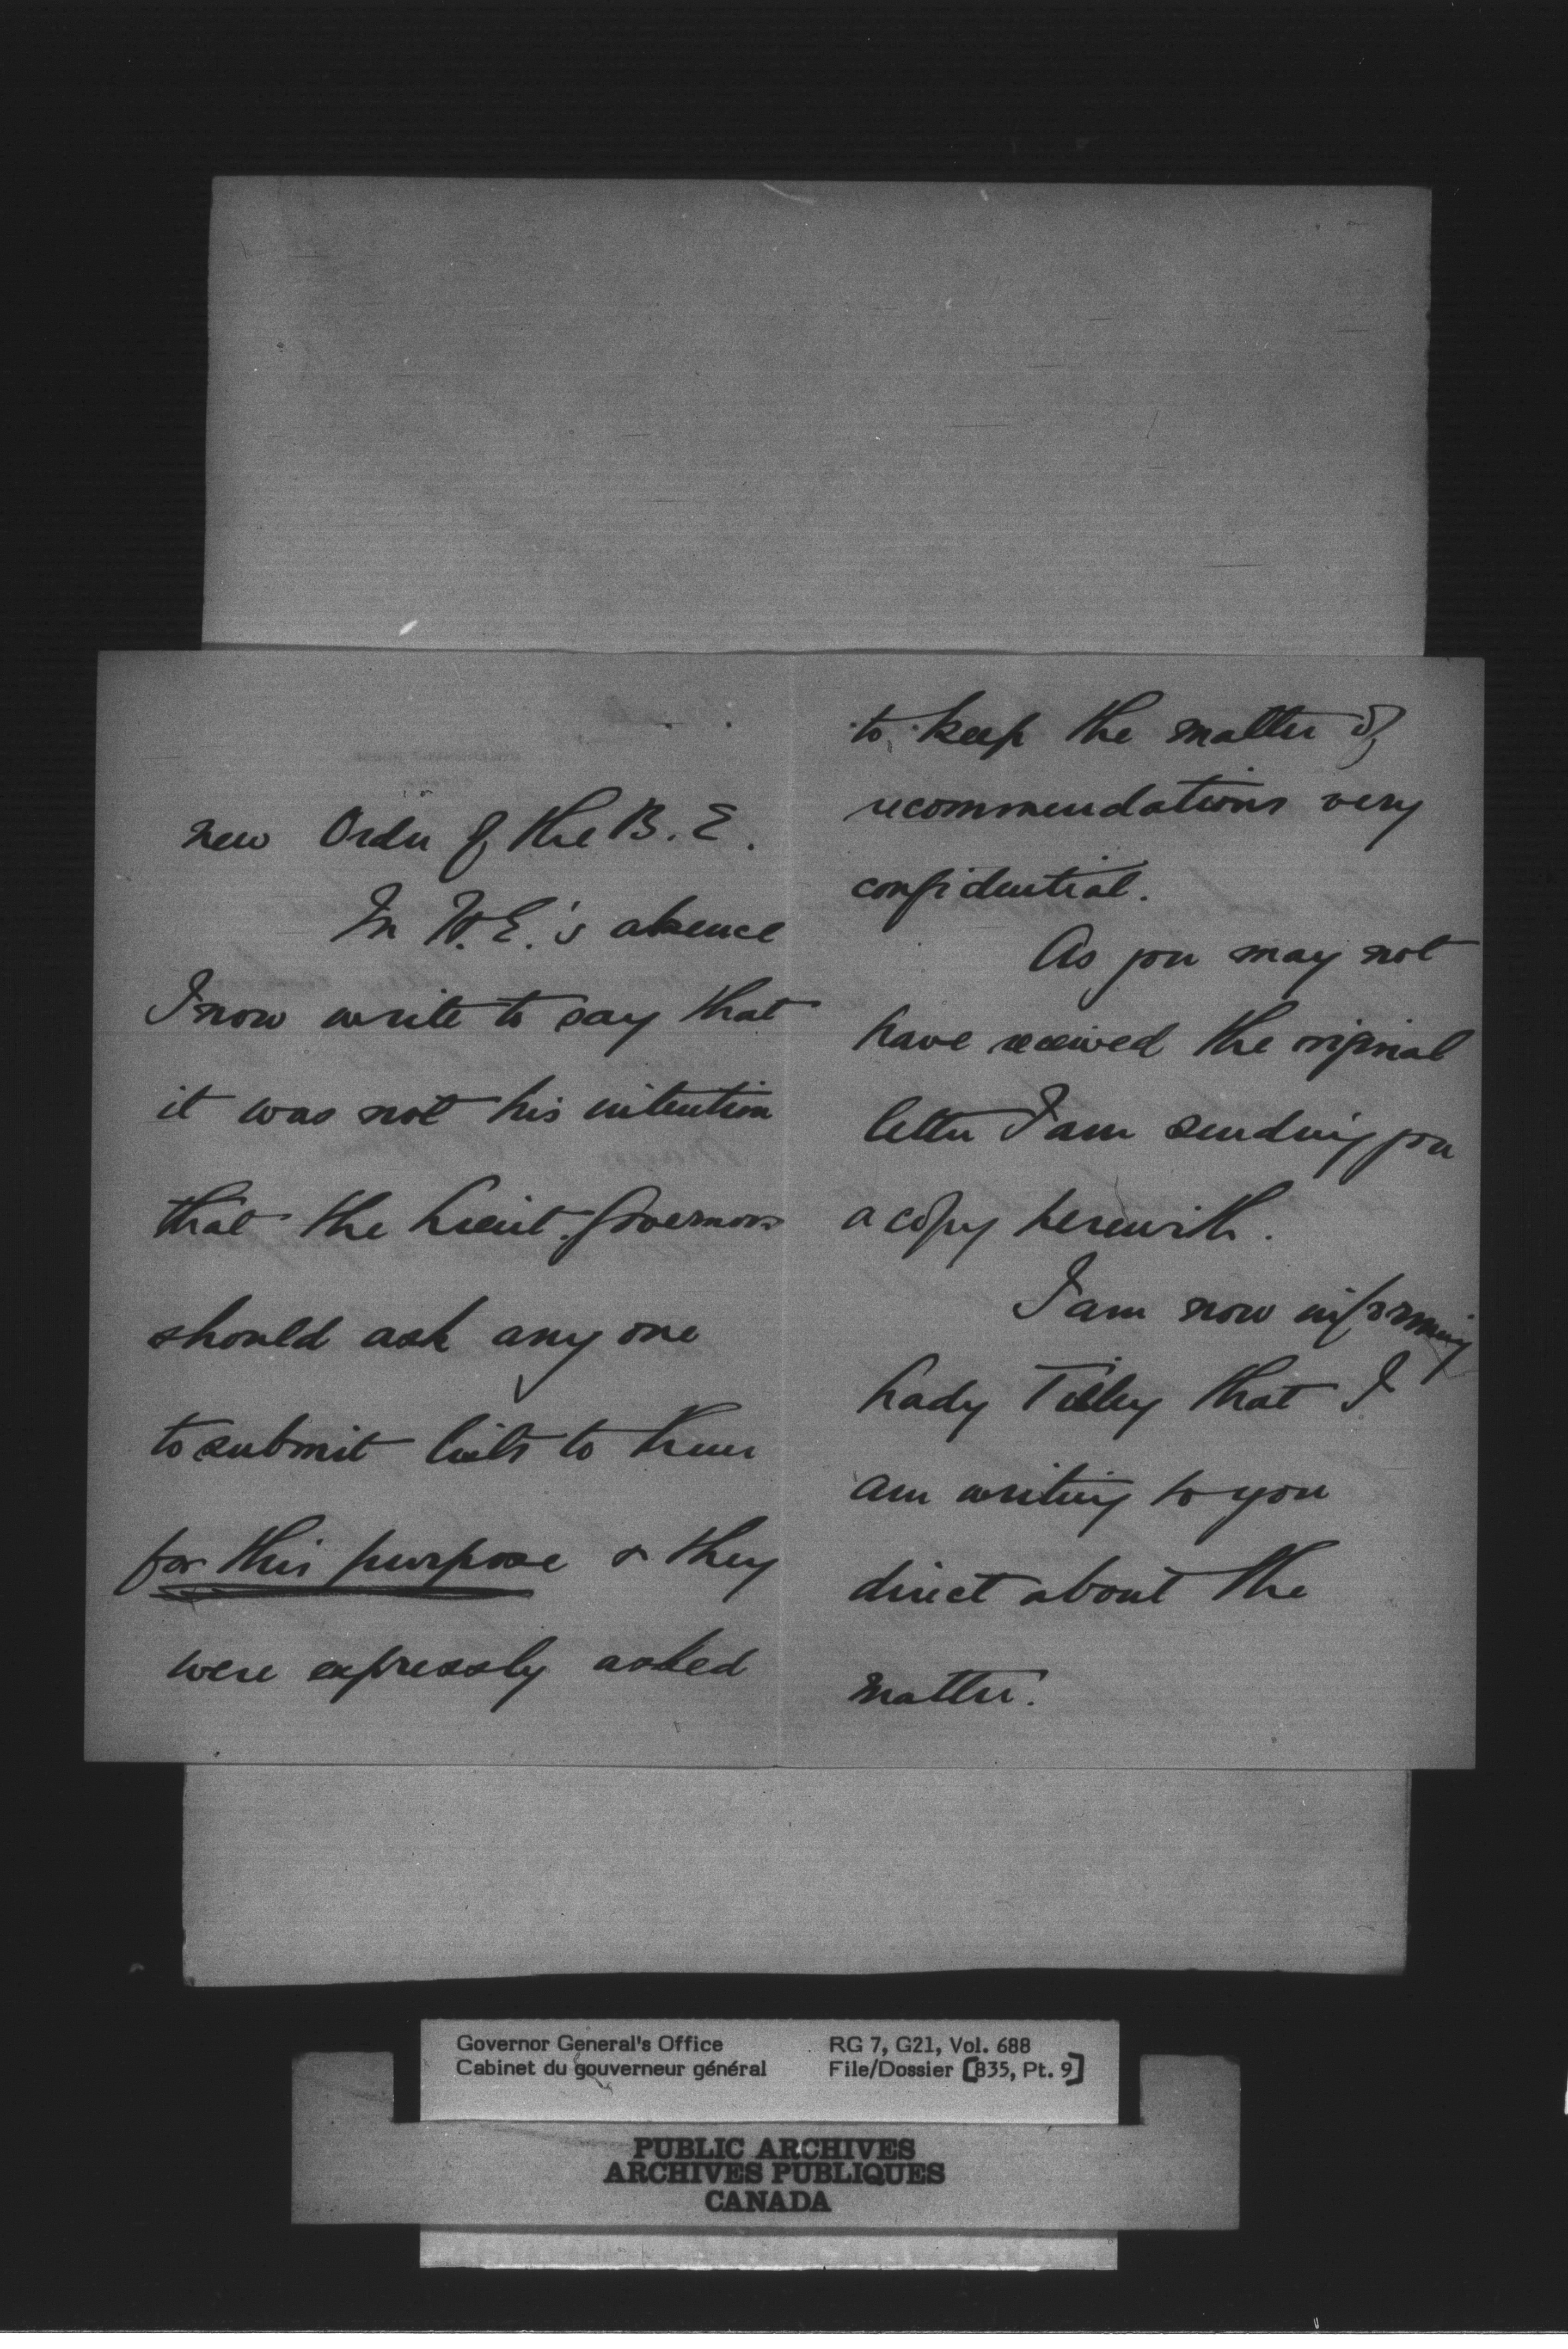 new Order of the B. E.
In H.E.'s absence
I now write to say that
it was not his intention
that the Lieut. Governors
should ask any one
to submit lists to them
for this purpose & they
were expressly asked
to keep the matter of
recommendations very
confidential.
As you may not
have received the original
letter I am sending you
a copy herewith.
I am now informing
Lady Tilley that I
am writing to you
direct about the
matter.
Governor General's Office
Cabinet du gouverneur général
RG 7, G21, Vol. 688
File/Dossier [835, Pt. 9]
PUBLIC ARCHIVES
ARCHIVES PUBLIQUES
CANADA